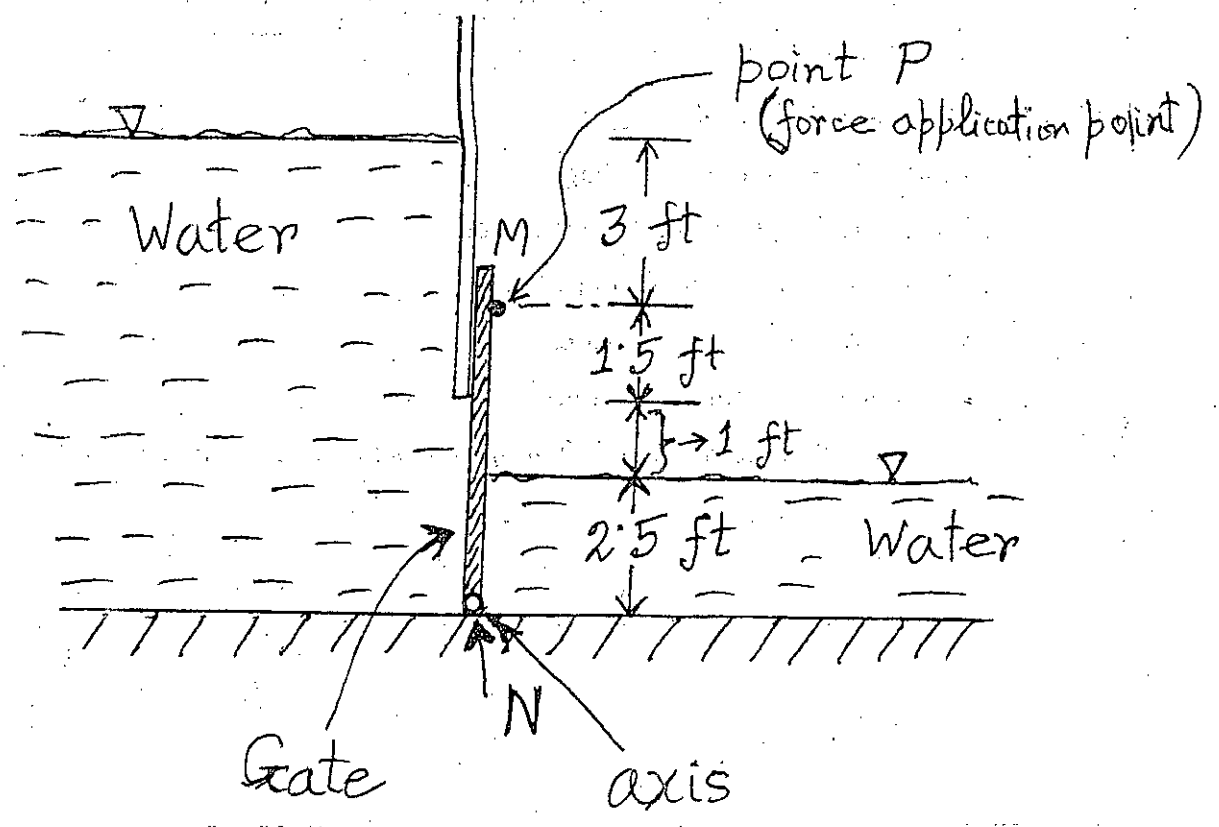 point P
(force application point)
Water
M
3 ft
1.5 ft
1 ft
2.5 ft
Water
N
Gate
axis